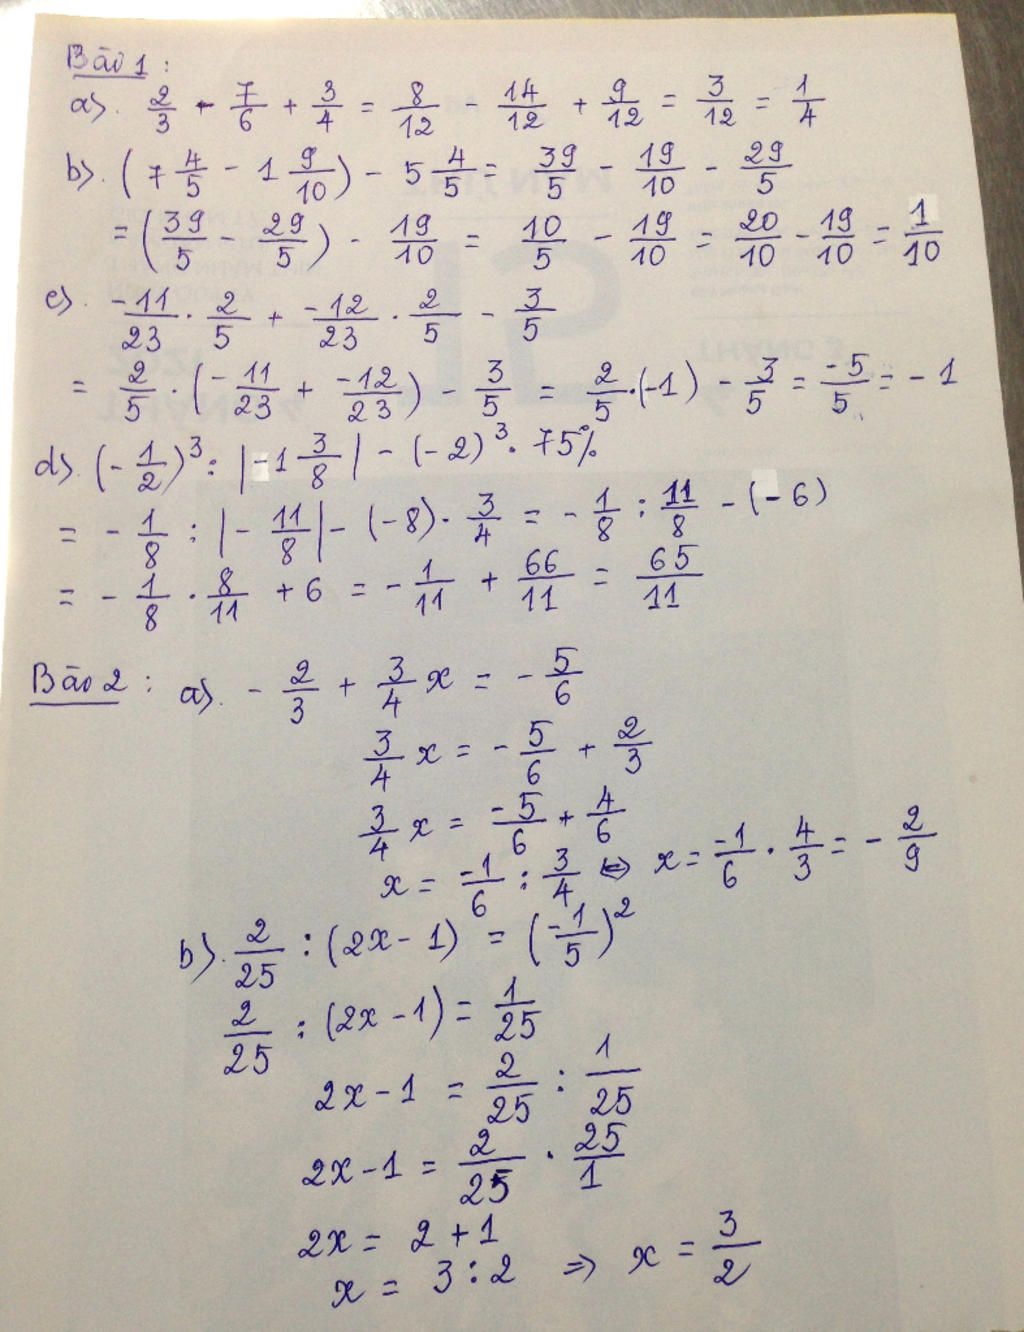 Bài 1 :
a). 2/3 - 7/6 + 3/4 = 8/12 - 14/12 + 9/12 = 3/12 = 1/4
b). (7 4/5 - 1 9/10) - 5 4/5 = 39/5 - 19/10 - 29/5
= (39/5 - 29/5) - 19/10 = 10/5 - 19/10 = 20/10 - 19/10 = 1/10
c). -11/23 . 2/5 + -12/23 . 2/5 - 3/5
= 2/5 . (-11/23 + -12/23) - 3/5 = 2/5 . (-1) - 3/5 = -5/5 = -1
d). (-1/2)³ : |-1 3/8| - (-2)³ . 75%
= -1/8 : |-11/8| - (-8) . 3/4 = -1/8 : 11/8 - (-6)
= -1/8 . 8/11 + 6 = -1/11 + 66/11 = 65/11
Bài 2 : a). -2/3 + 3/4 x = -5/6
3/4 x = -5/6 + 2/3
3/4 x = -5/6 + 4/6
x = -1/6 : 3/4 ⇔ x = -1/6 . 4/3 = -2/9
b). 2/25 : (2x - 1) = (-1/5)²
2/25 : (2x - 1) = 1/25
2x - 1 = 2/25 : 1/25
2x - 1 = 2/25 . 25/1
2x = 2 + 1
x = 3 : 2 ⇒ x = 3/2